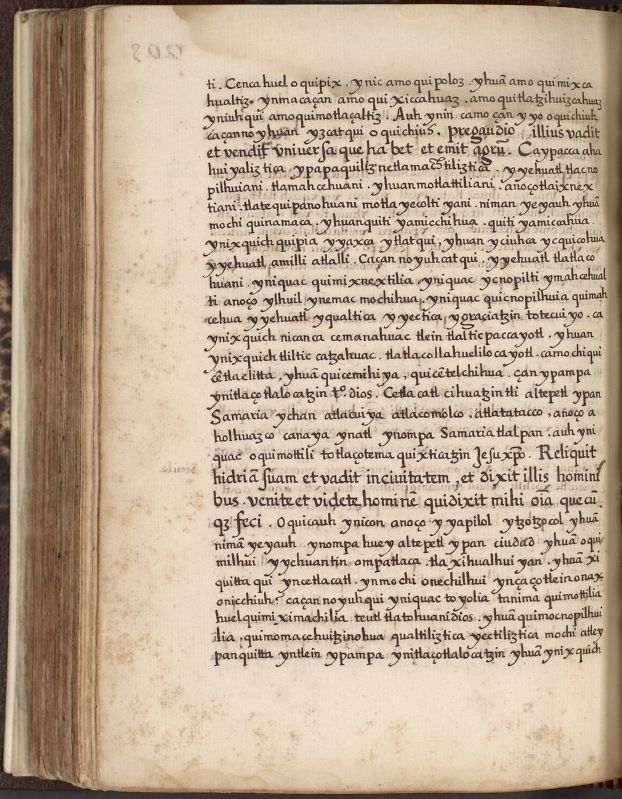 ti. Cenca huel o quipix. ynic amo qui poloz. yhuā amo qui mixca
hualtiz. ynmacaçan amo qui xiccahuaz. amo quitlatzihuizcahuaz
yniuhqui amo quimotlaçaltiz. Auh ynin camo çan yyo o quichiuh
caçanno yhuan yzcatqui o quichiuh. pregaudio illius vadit
et vendit universa que habet et emit agrū. Caypacca aha
huiyaliztica, ypapaquiliz netlamachtiliztica. yyehuatl tlacno
pilhuiani. tlamahcehuani. yhuan motlattiliani. anoço tlaixnex
tiani. tlatequipanohuani motlayecolti yani. niman yeyauh yhuā
mochi quinamaca, yhuan quiti yamicchihua. quiti yamicahua
ynixquich quipia yyaxca ytlatqui, yhuan yciuhca ycquicohua
yyehuatl, amilli atlalli. Caçan no yuhcatqui. yyehuatl tlatlaco
huani. yniquac quimixnextilia, yniquac ycnopilti ymahcehual
ti anoço ylhuil ynemac mochihua, yniquac quicnopilhuia quimah
cehua yyehuatl yqualtica yyectica, ygraçiatzin totecuiyo. ca
ynixquich nican ca cemanahuac tlein tlalticpaccayotl. yhuan
ynixquich tliltic catzahuac. tlatlacollahuelilocayotl. camo chiqui
cētlaelitta, yhuā quicemihiya, quicētelchihua. çan ypampa
ynitlaçotlalocatzin tº. dios. Cetlacatl cihuatzintli altepetl ypan
Samaria ychan atlacuiya atlacomolco. atlatatacco. anoço a
tolhuazco canaya ynatl ynompa Samaria tlalpan. auh yni
quac oquimottili totlaçotemaquixticatzin Jesuxpō. Reliquit
hidriā suam et vadit in civitatem, et dixit illis homini
bus. venite et videte hominē qui dixit mihi oīa que cū
qz feci. Oquicauh ynicon anoço yyapilol ytzotzocol yhuā
nimā yeyauh ynompa huey altepetl ypan ciudad yhuā o qui
milhui yychuantin ompatlaca. tla xihualhuiyan. yhuā xi
quitta qui yncetlacatl. ynmochi onechilhui ynçaçotlein onax
onicchiuh: caçan noyuhqui yniquac toyolia tanima quimottilia
huel quimiximachilia teutl tlatohuani dios. yhuā quimocnopilhui
lia. quimomacehuitzinohua qualtiliztica yectiliztica mochi atley
panquitta yntlein ypampa ynitlaçotlalocatzin yhuā ynixquich